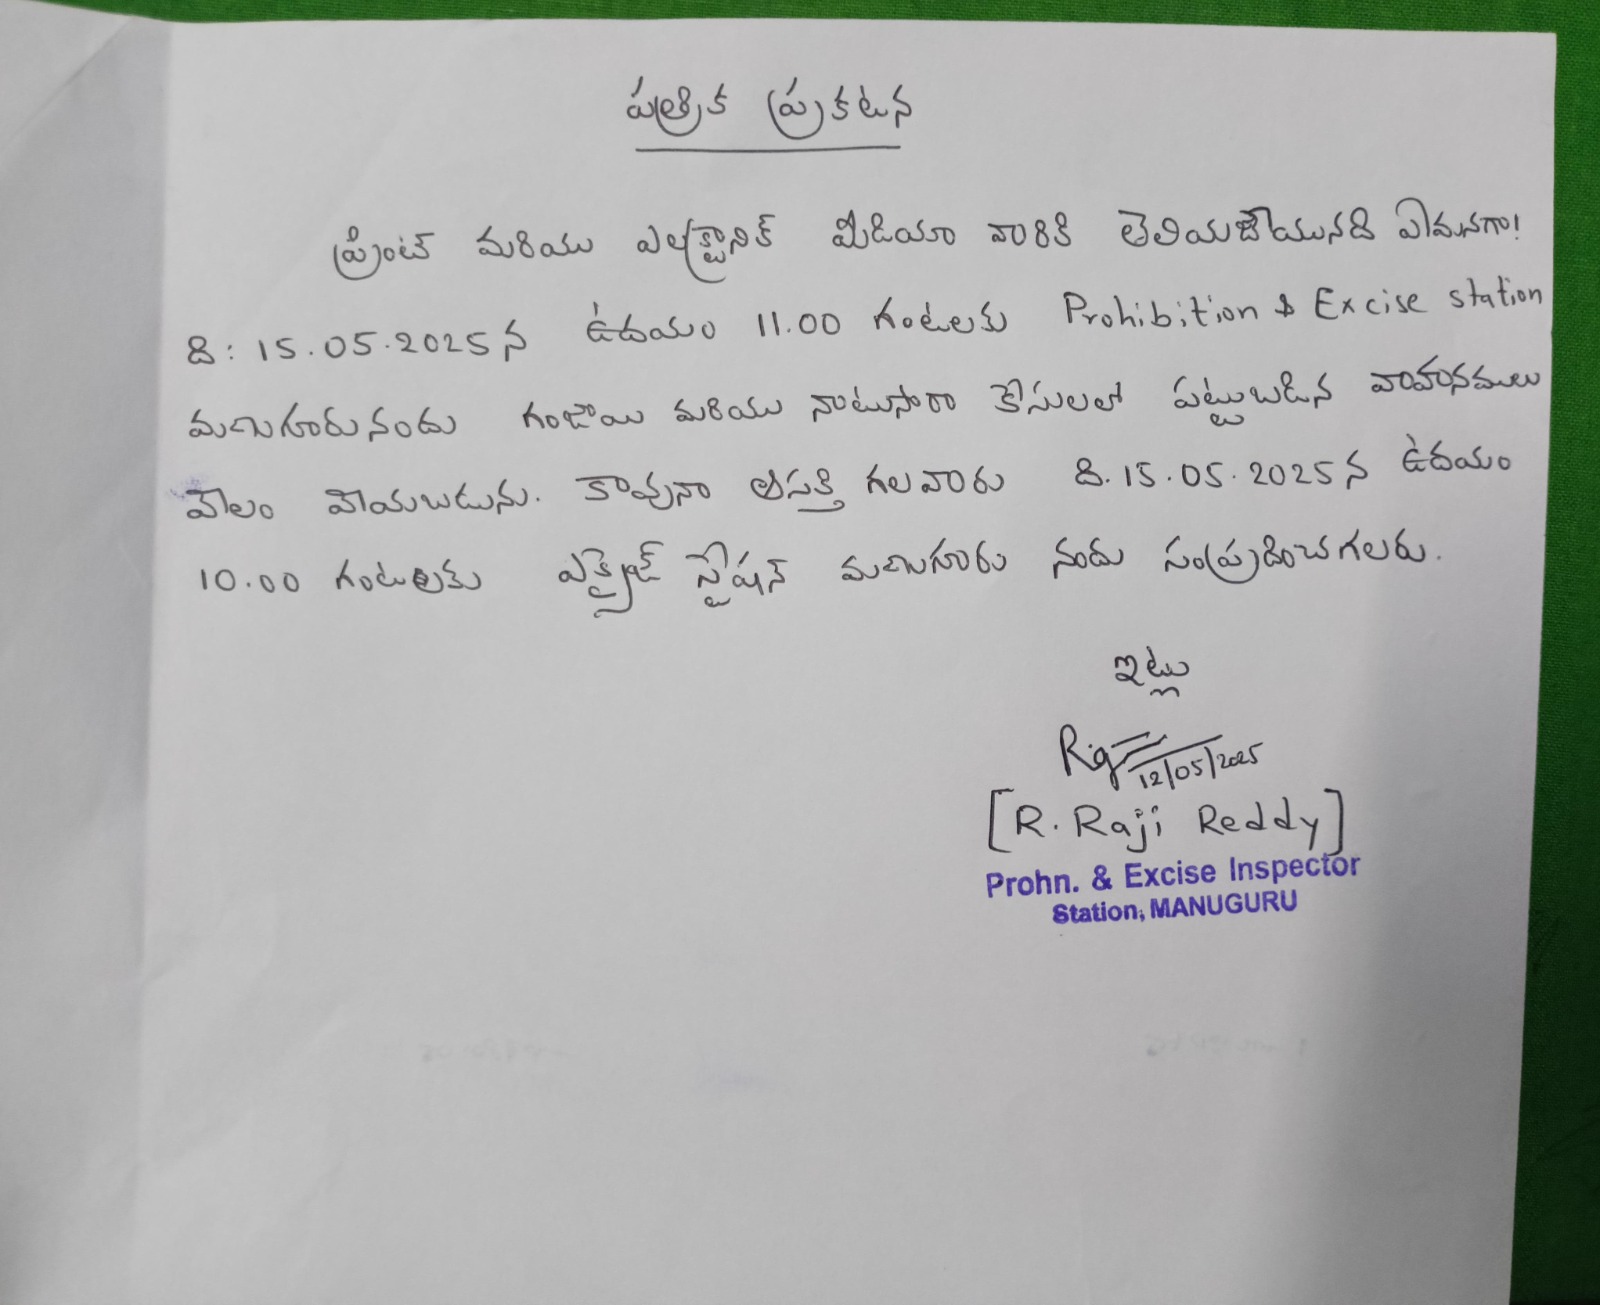 పత్రిక ప్రకటన
ప్రింట్ మరియు ఎలక్ట్రానిక్ మీడియా వారికి తెలియజేయునది ఏమనగా!
ది: 15.05.2025 న ఉదయం 11.00 గంటలకు Prohibition & Excise station
మణుగూరు నందు గంజాయి మరియు నాటుసారా కేసులలో పట్టుబడిన వాహనములు
వేలం వేయబడును. కావునా ఆసక్తి గలవారు ది. 15.05.2025 న ఉదయం
10.00 గంటలకు ఎక్సైజ్ స్టేషన్ మణుగూరు నందు సంప్రదించగలరు.
ఇట్లు
12/05/2025
[R. Raji Reddy]
Prohn. & Excise Inspector
Station, MANUGURU